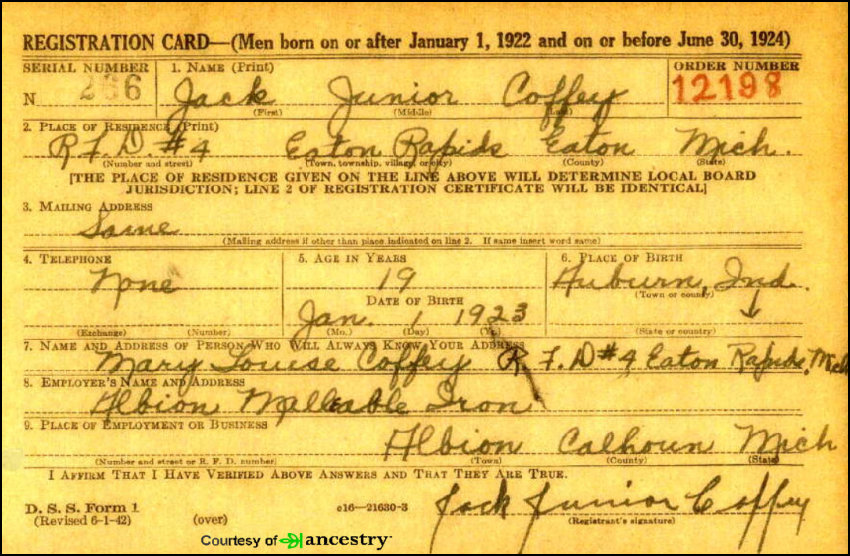 REGISTRATION CARD—(Men born on or after January 1, 1922 and on or before June 30, 1924)
SERIAL NUMBER 1. NAME (Print) ORDER NUMBER
N 266 Jack Junior Coffey 12198
(First) (Middle) (Last)
2. PLACE OF RESIDENCE (Print)
R.F.D. #4 Eaton Rapids Eaton Mich.
(Number and street) (Town, township, village, or city) (County) (State)
[THE PLACE OF RESIDENCE GIVEN ON THE LINE ABOVE WILL DETERMINE LOCAL BOARD
JURISDICTION; LINE 2 OF REGISTRATION CERTIFICATE WILL BE IDENTICAL]
3. MAILING ADDRESS
Same
(Mailing address if other than place indicated on line 2. If same insert word same)
4. TELEPHONE 5. AGE IN YEARS 6. PLACE OF BIRTH
None 19 Auburn, Ind.
DATE OF BIRTH (Town or county)
Jan. 1 1923
(Exchange) (Number) (Mo.) (Day) (Yr.) (State or country)
7. NAME AND ADDRESS OF PERSON WHO WILL ALWAYS KNOW YOUR ADDRESS
Mary Louise Coffey R.F.D #4 Eaton Rapids, Mich
8. EMPLOYER'S NAME AND ADDRESS
Albion Malleable Iron
9. PLACE OF EMPLOYMENT OR BUSINESS
Albion Calhoun Mich
(Number and street or R. F. D. number) (Town) (County) (State)
I AFFIRM THAT I HAVE VERIFIED ABOVE ANSWERS AND THAT THEY ARE TRUE.
D. S. S. Form 1 c16—21630-3 Jack Junior Coffey
(Revised 6-1-42) (over) (Registrant's signature)
Courtesy of ancestry